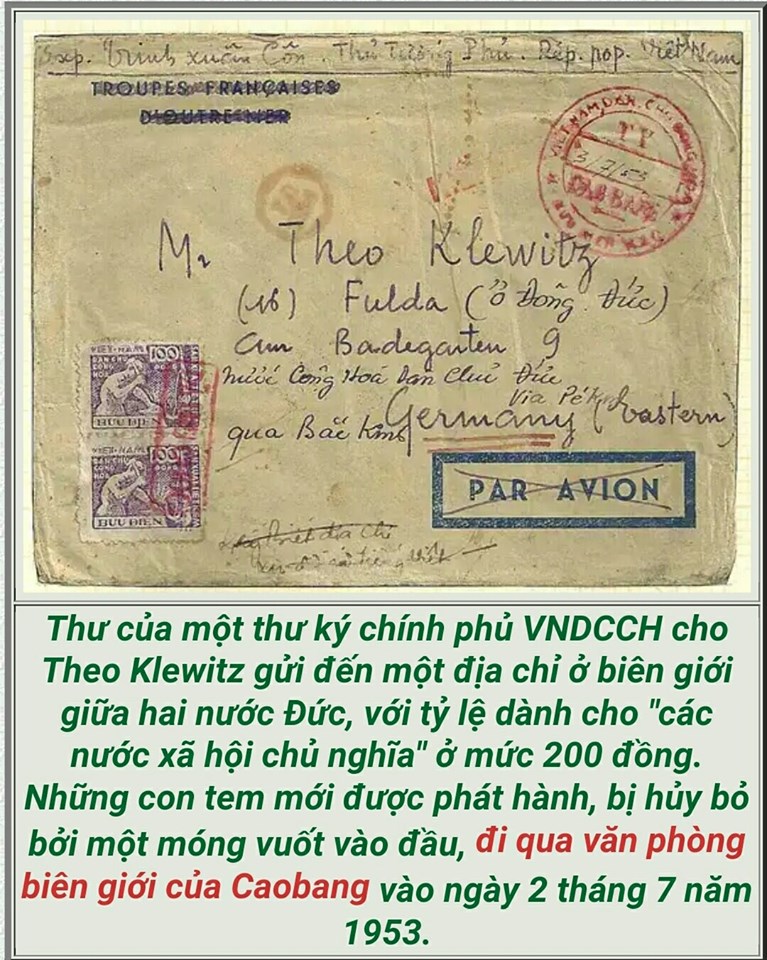 Exp. Trinh xuân Côn. Thủ Tướng Phủ. Rép. pop. Việt Nam
TROUPES FRANÇAISES
D'OUTRE-MER
VIET NAM DAN CHU CONG HOA
3/7/53
CAO BANG
Mr Theo Klewitz
(16) Fulda (ở Đông Đức)
am Badegarten 9
nước Cộng Hoà Dân Chủ Đức
Via Pékin
qua Bắc Kinh Germany (Eastern)
VIET-NAM 100
DAN CHU
CONG
HOA
BUU ĐIEN
VIET-NAM 100
DAN CHU
CONG
HOA
BUU ĐIEN
PAR AVION
Thư của một thư ký chính phủ VNDCCH cho
Theo Klewitz gửi đến một địa chỉ ở biên giới
giữa hai nước Đức, với tỷ lệ dành cho "các
nước xã hội chủ nghĩa" ở mức 200 đồng.
Những con tem mới được phát hành, bị hủy bỏ
bởi một móng vuốt vào đầu, đi qua văn phòng
biên giới của Caobang vào ngày 2 tháng 7 năm
1953.